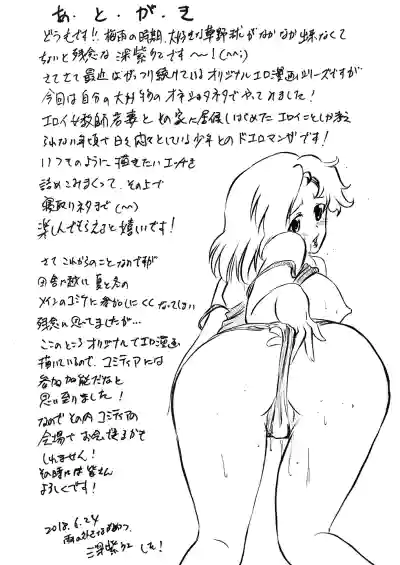 あ・と・が・き
どうもです!! 梅雨の時期、大好きな草野球がなかなか出来なくて
ちょいと残念な 深紫クエです～!(^^;)
さてさて最近はがっつり続けているオリジナルエロ漫画シリーズですが
今回は自分の大好物のオネショタネタでやってみました!
エロイ女教師若妻とその家に居候しはじめたエロイことしか考え
られない年頃で日々悶々としている少年とのドエロマンガです!
いつものように描きたいエッチを
詰めこみまくって、その上で
寝取りネタまで(^^)
楽しんでもらえると嬉しいです!
さてこれからのことなのですが
田舎 夏と冬の
メインのコミケに参加しにくくなってしまい
残念に思ってましたが…
ここのところオリジナルでエロ漫画
描いているので、コミティアには
参加可能だなと
思い到りました!
なのでその内コミティアの
会場でお会い出来るかも
しれません!
その時には皆さん
よろしくです!
2018.6.24
雨の
深紫クエでした!